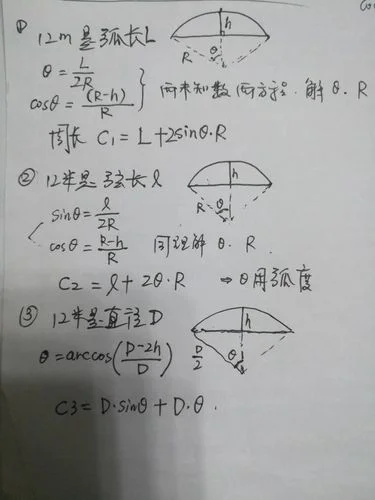 ① 12m是弧长L
θ = L/2R
cosθ = (R-h)/R } 两未知数 两方程. 解 θ. R
周长 C₁ = L+2sinθ·R
② 12米是弦长 l
sinθ = l/2R
cosθ = R-h/R 同理解 θ. R
C2 = l + 2θ·R ⇒ θ用弧度
③ 12米是直径D
θ = arccos(D-2h/D)
C3 = D·sinθ + D·θ.
h
R θ
h
R θ
h
D/2 θ